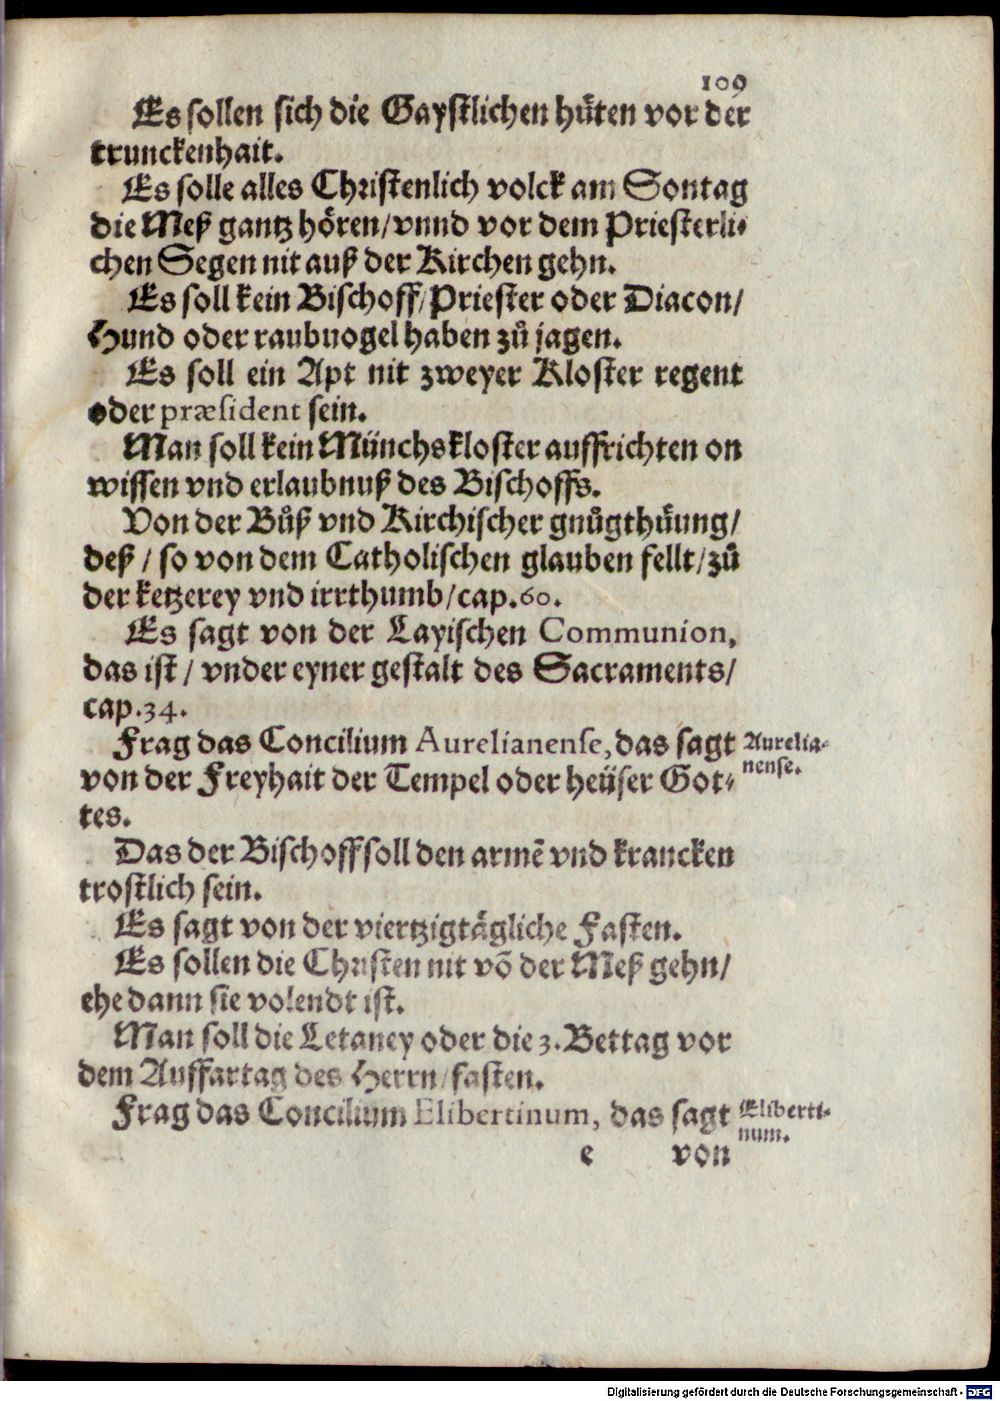 109
Es sollen sich die Gaystlichen hůten vor der
trunckenhait.
Es solle alles Christenlich volck am Sontag
die Meß gantz hoͤren/vnnd vor dem Priesterli⸗
chen Segen nit auß der Kirchen gehn.
Es soll kein Bischoff/Priester oder Diacon/
Hund oder raubuogel haben zů jagen.
Es soll ein Apt nit zweyer Kloster regent
oder præsident sein.
Man soll kein Münchskloster auffrichten on
wissen vnd erlaubnuß des Bischoffs.
Von der Bůß vnd Kirchischer gnůgthuͤung/
deß / so von dem Catholischen glauben fellt/zů
der ketzerey vnd irrthumb/cap.60.
Es sagt von der Layischen Communion,
das ist / vnder eyner gestalt des Sacraments/
cap.34.
Frag das Concilium Aurelianense, das sagt
von der Freyhait der Tempel oder heüser Got⸗
tes.
Aurelia⸗
nense.
Das der Bischoff soll den armē vnd krancken
trostlich sein.
Es sagt von der viertzigtaͤgliche Fasten.
Es sollen die Christen nit vō der Meß gehn/
ehe dann sie volendt ist.
Man soll die Letaney oder die 3. Bettag vor
dem Auffartag des Herrn/fasten.
Frag das Concilium Elibertinum, das sagt
Eliberti⸗
num.
e von
Digitalisierung gefördert durch die Deutsche Forschungsgemeinschaft - DFG